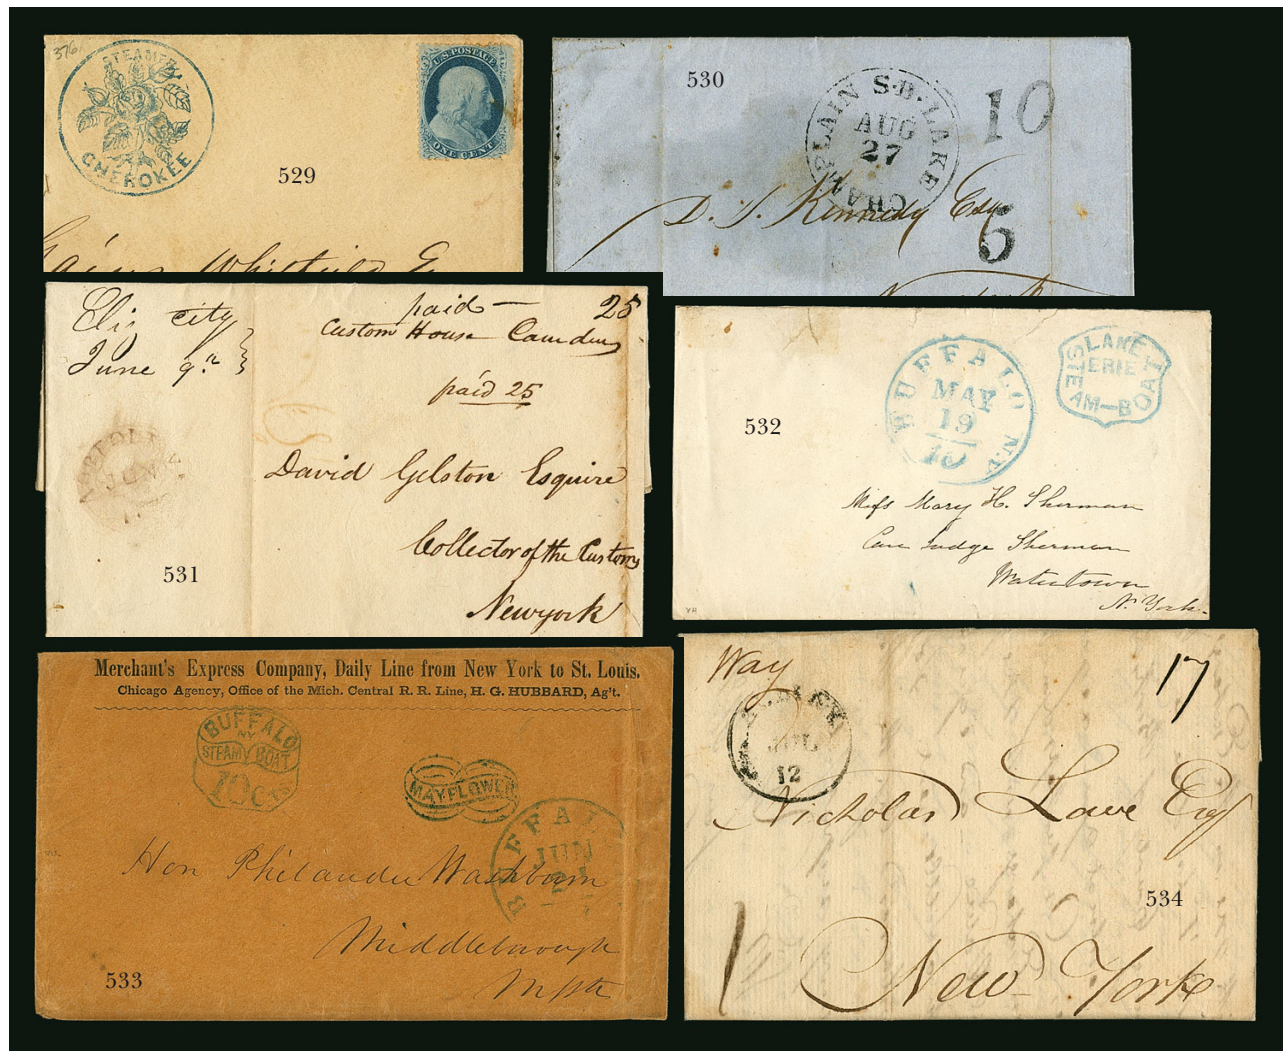 376
STEAMER
CHEROKEE
U.S. POSTAGE
ONE CENT
529
Whitfield
530
S.B. LAKE CHAMPLAIN
AUG
27
10
D. S. Kennedy Esq
5
Eliz city
June 9th
paid 25
Custom House Camden
paid 25
NORFOLK
JUN
David Gelston Esquire
Collector of the Customs
New york
531
BUFFALO N.Y.
MAY
19
10
LAKE
ERIE
STEAM-BOAT
532
Miss Mary H. Sherman
Care Judge Sherman
Watertown
N. York.
Merchant's Express Company, Daily Line from New York to St. Louis.
Chicago Agency, Office of the Mich. Central R. R. Line, H. G. HUBBARD, Ag't.
BUFFALO
NY
STEAM BOAT
10 CTS
MAYFLOWER
BUFFALO
JUN
Hon Philander Washburn
Middleborough
533
Way
17
JUL
12
Nicholas Lowe Esq
534
1
New York